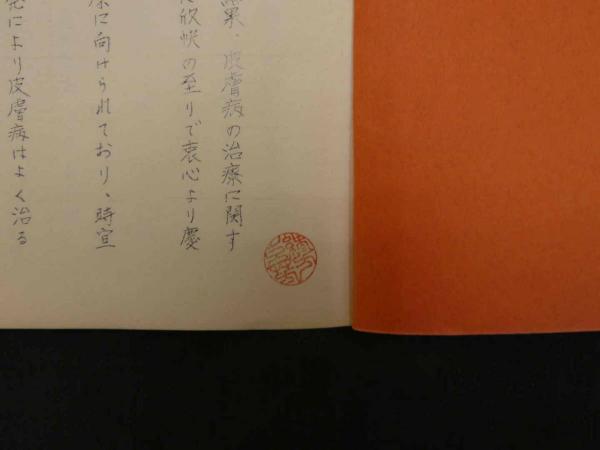 果、皮膚病の治療に関す
欣快の至りで衷心より慶
療に向けられており、時宜
により皮膚病はよく治る